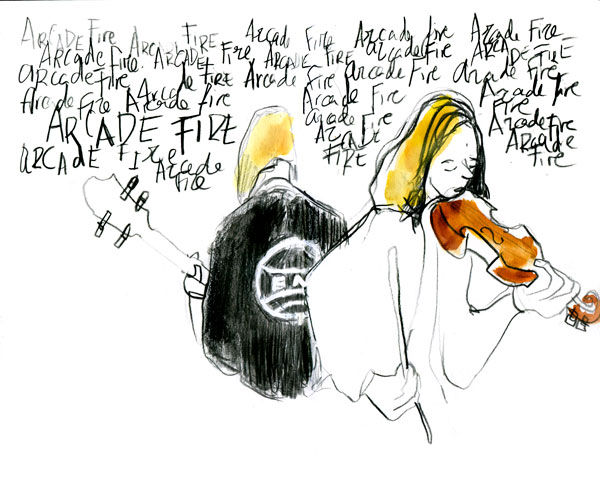 ARCADE Fire ARCADE FIRE Arcade Fire Arcade fire Arcade Fire
Arcade Fire ARCADE Fire ARCADE FIRE arcade Fire ARCADE FIRE
arcade fire Arcade FIRE Arcade Fire Arcade Fire Arcade Fire
Arcade Fire Arcade fire Arcade Fire Arcade fire
ARCADE FIRE arcade Fire Fire
ARCADE Fire ARCADE FIRE Arcade fire
Arcade Fire Arcade Fire
EM